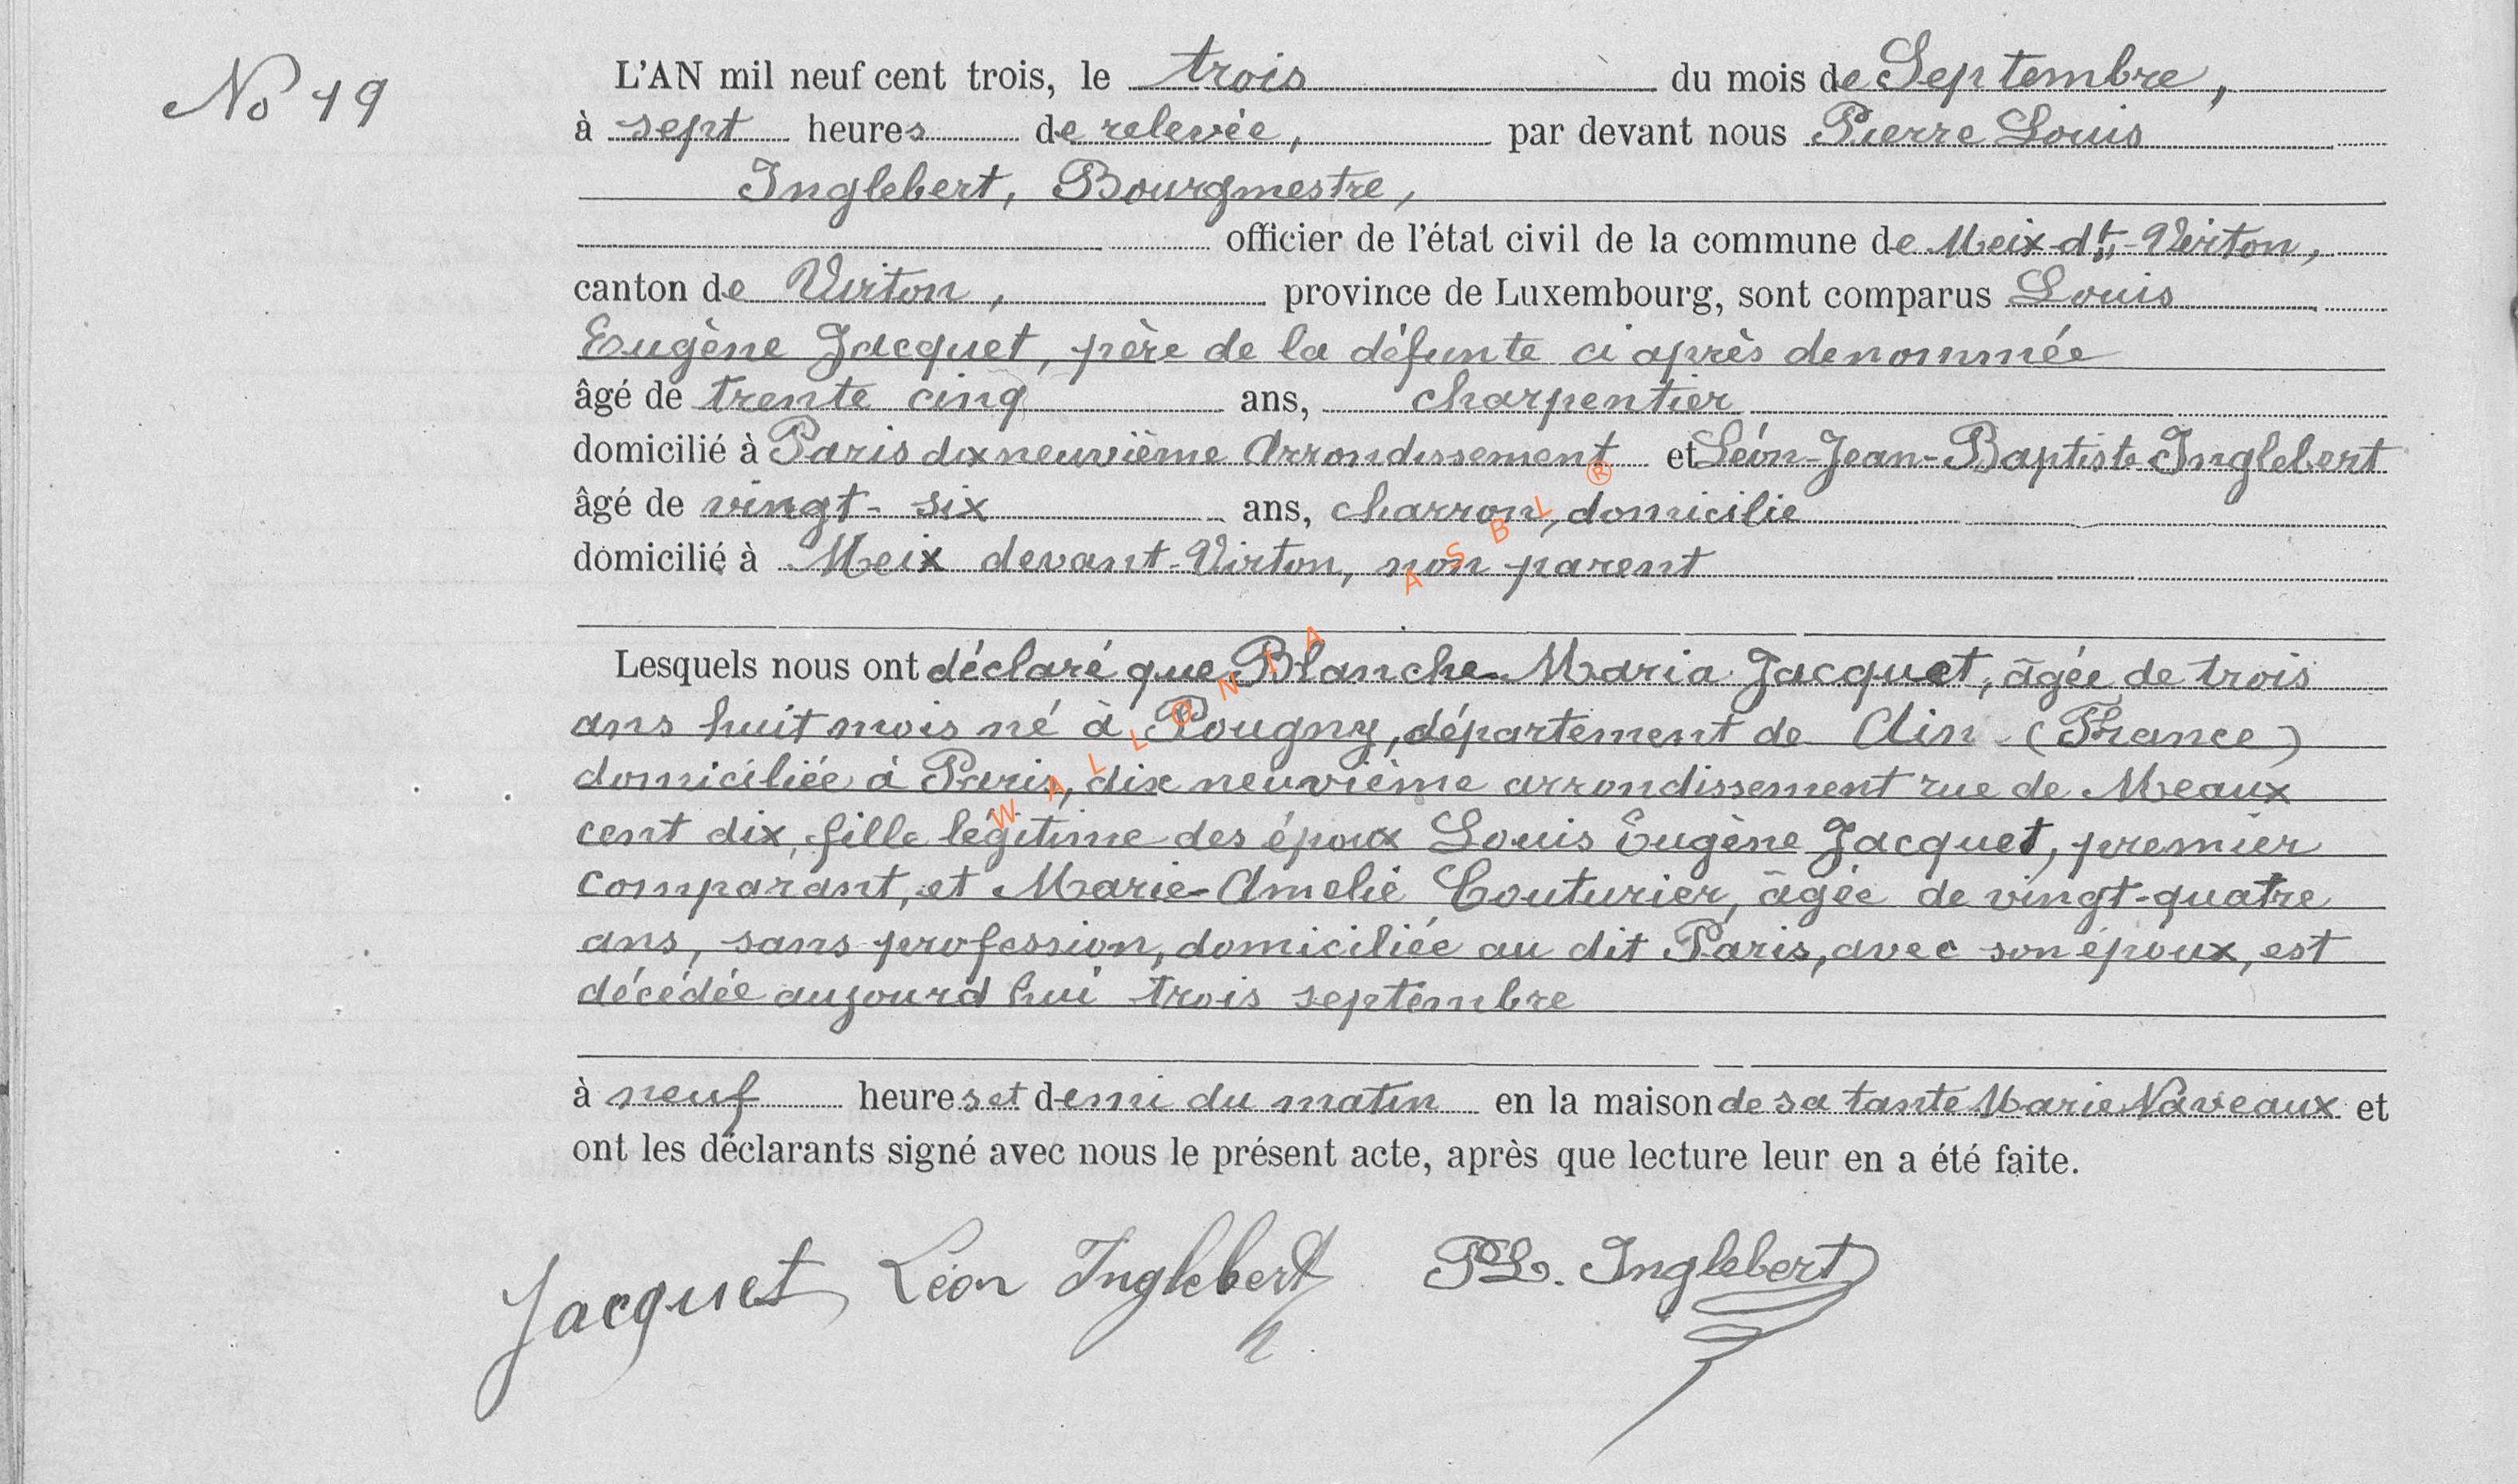 No 19
L'AN mil neuf cent trois, le trois du mois de Septembre,
à sept heures de relevée, par devant nous Pierre Louis
Inglebert, Bourgmestre,
officier de l'état civil de la commune de Meix-dt-Virton,
canton de Virton, province de Luxembourg, sont comparus Louis
Eugène Jacquet, père de la défunte ci après denommée
âgé de trente cinq ans, charpentier
domicilié à Paris dix neuvième Arrondissement et Léon-Jean-Baptiste Inglebert
âgé de vingt-six ans, charron, domicilie
domicilié à Meix devant-Virton, non parent
Lesquels nous ont déclaré que Blanche-Maria Jacquet, âgée de trois
ans huit mois né à Pougny, département de Ain (France)
domiciliée à Paris, dix neuvième arrondissement rue de Meaux
cent dix, fille légitime des époux Louis Eugène Jacquet, premier
comparant, et Marie-Amelie Couturier, âgée de vingt-quatre
ans, sans profession, domiciliée au dit Paris, avec son époux, est
décédée aujourd'hui trois septembre
à neuf heures et demi du matin en la maison de sa tante Marie Naveaux et
ont les déclarants signé avec nous le présent acte, après que lecture leur en a été faite.
Jacquet Léon Inglebert PL. Inglebert
WALLONIA ASBL ®